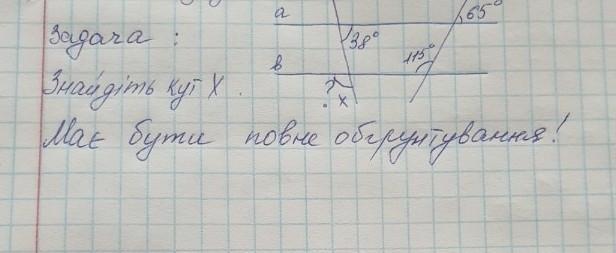 a 65°
Задача : 38°
в 115°
Знайдіть кут X .
x
Має бути повне обгрунтування!